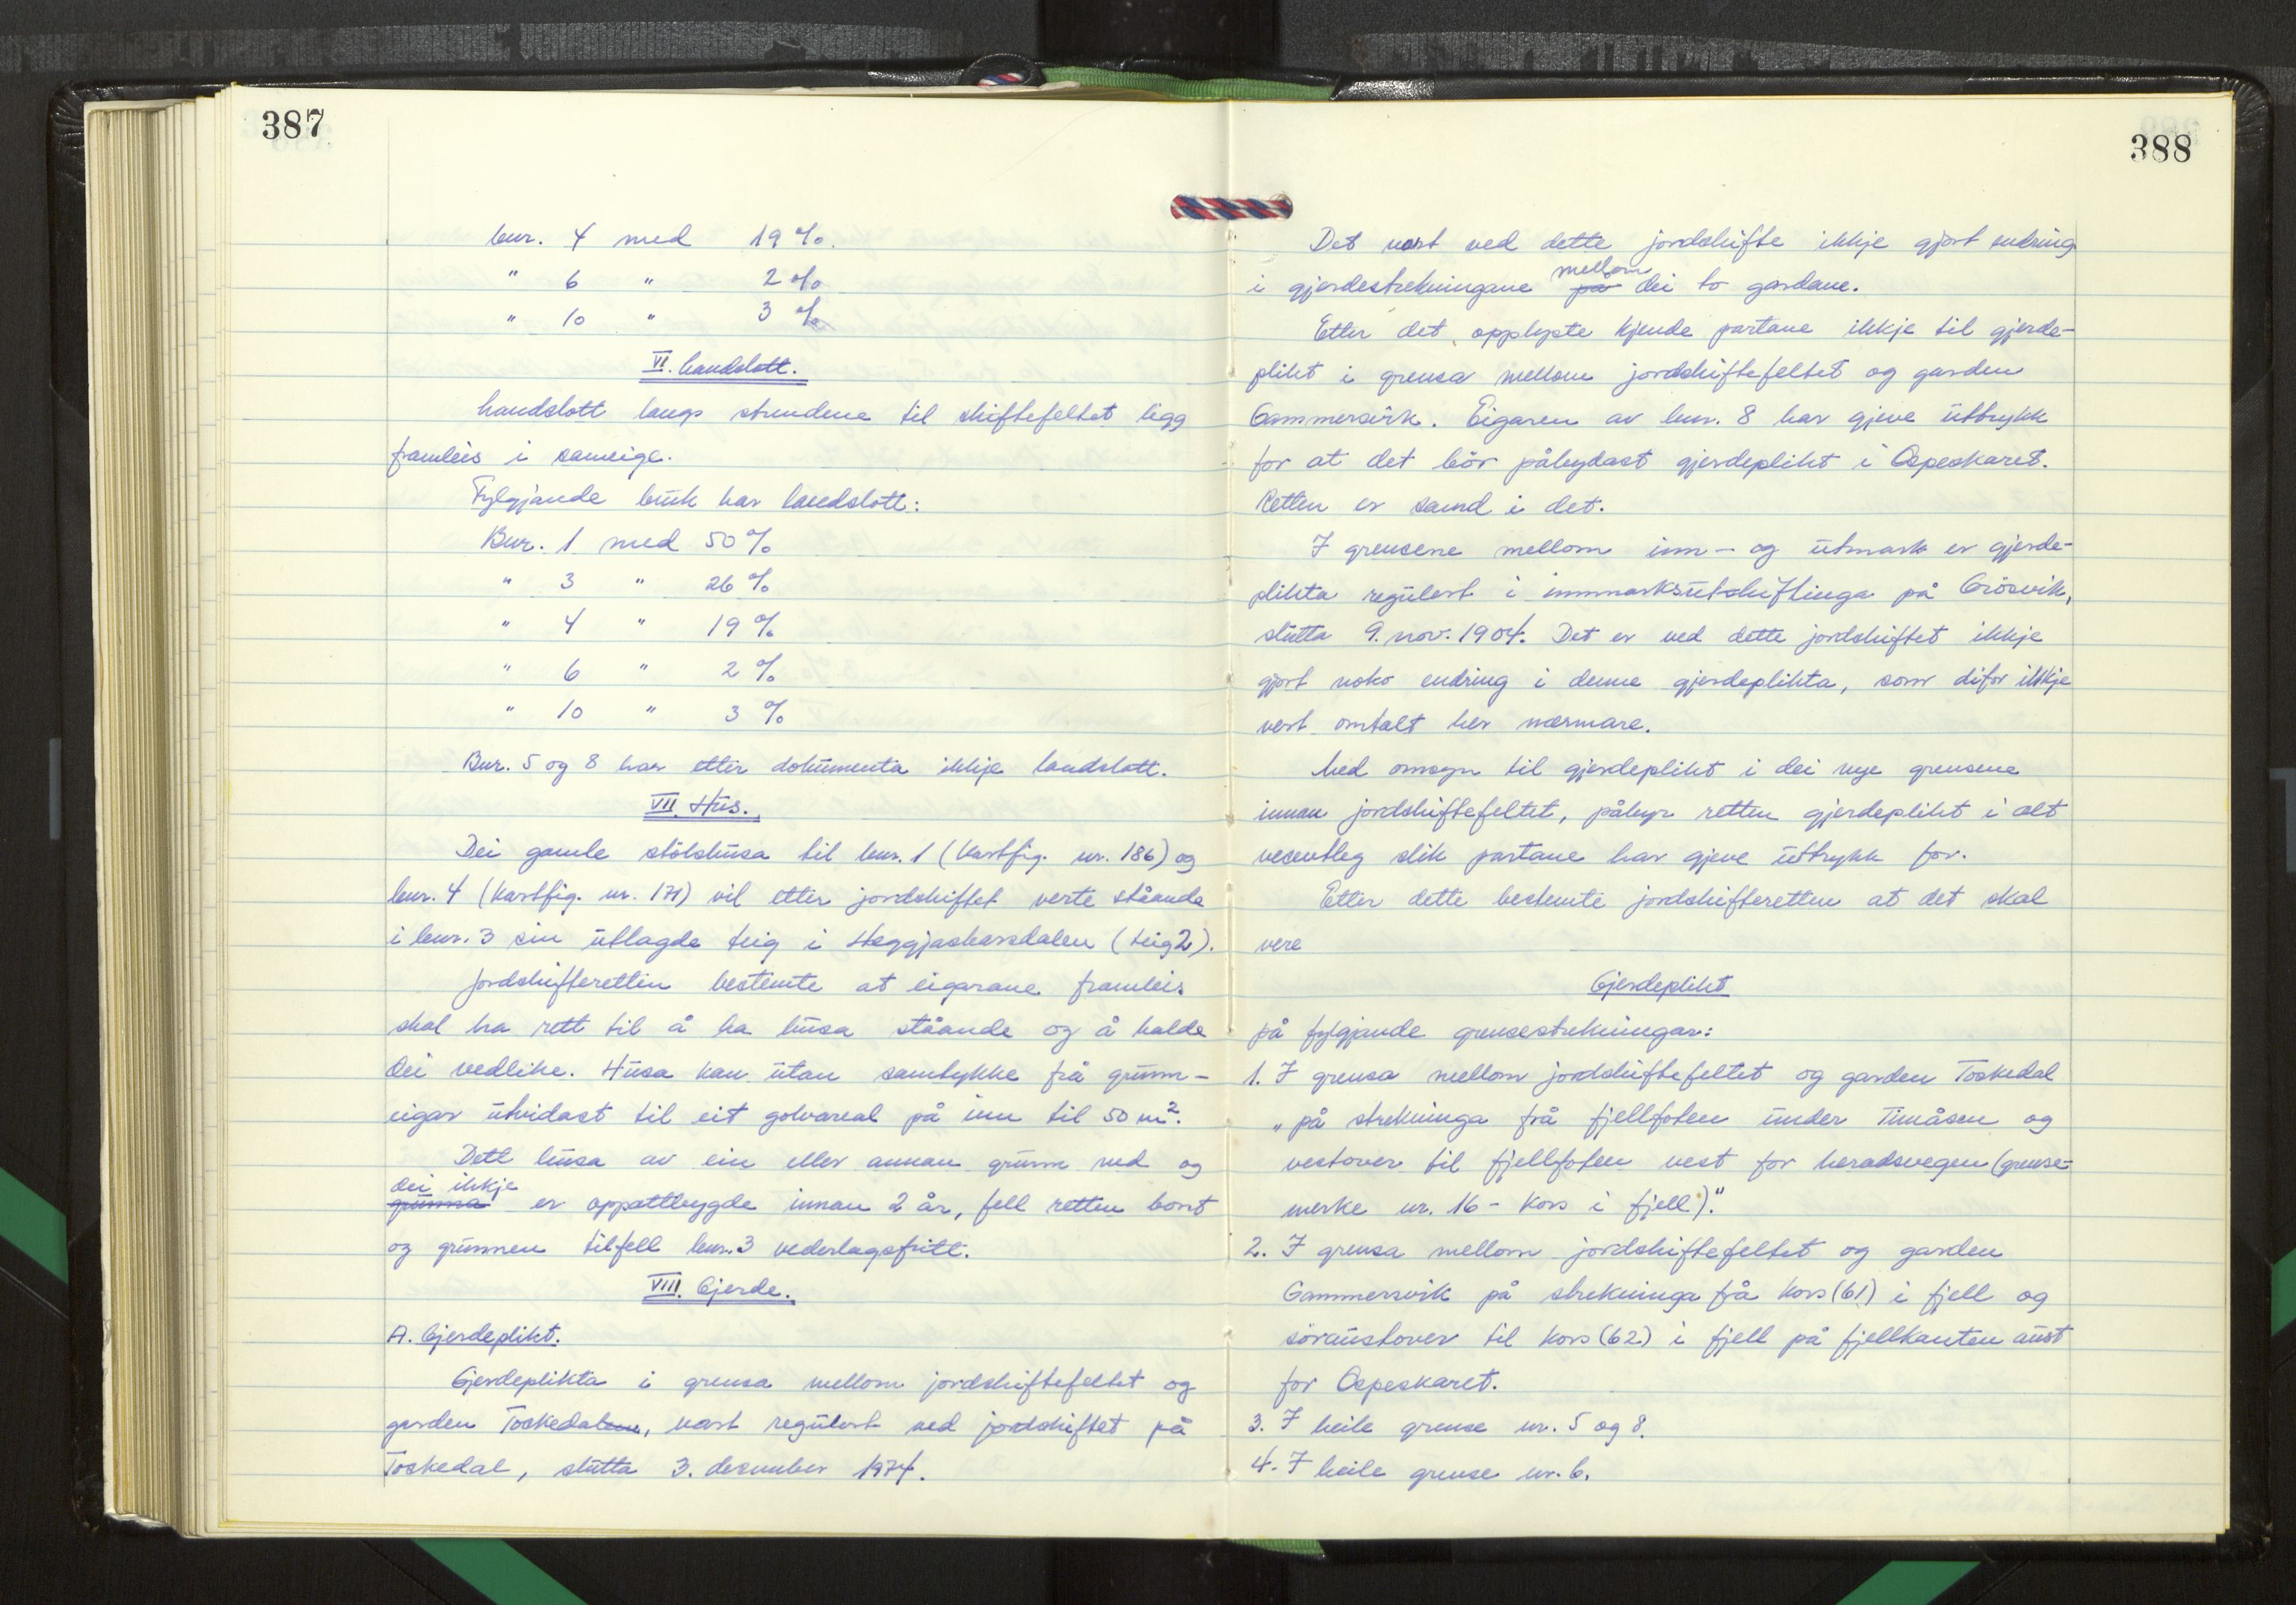 387
bnr. 4 med 19 %.
" 6 " 2 %
" 10 " 3 %
VI. Landslott.
Landslott langs strendene til skiftefeltet ligg
framleis i sameige.
Fylgjande bruk har landslott:
Bnr. 1 med 50 %
" 3 " 26 %
" 4 " 19 %
" 6 " 2 %
" 10 " 3 %
Bnr. 5 og 8 har etter dokumenta ikkje landslott.
VII. Hus.
Dei gamle stölshusa til bnr. 1 (Kartfig. nr. 186) og
bnr. 4 (Kartfig. nr. 171) vil etter jordskiftet verte ståande
i bnr. 3 sin utlagde teig i Heggjaskarsdalen (teig 2).
Jordskifteretten bestemte at eigarane framleis
skal ha rett til å ha husa ståande og å halde
dei vedlike. Husa kan utan samtykke frå grunn-
eigar utvidast til eit golvareal på inn til 50 m².
Dett husa av ein eller annan grunn ned og
dei ikkje
grunna er oppattbygde innan 2 år, fell retten bort
og grunnen tilfell bnr. 3 vederlagsfritt.
VIII. Gjerde.
A. Gjerdeplikt.
Gjerdeplikta i grensa mellom jordskiftefeltet og
garden Toskedalen, vart regulert ved jordskiftet på
Toskedal, slutta 3. desember 1974.
388
Det vart ved dette jordskifte ikkje gjort endring
mellom
i gjerdestrekningane på dei to gardane.
Etter det opplyste kjende partane ikkje til gjerde-
plikt i grensa mellom jordskiftefeltet og garden
Gammersvik. Eigaren av bnr. 8 har gjeve uttrykk
for at det bör påbydast gjerdeplikt i Ospeskaret.
Retten er samd i det.
I grensene mellom inn- og utmark er gjerde-
plikta regulert i innmarksutskiftinga på Grösvik,
slutta 9. nov. 1904. Det er ved dette jordskiftet ikkje
gjort noko endring i denne gjerdeplikta, som difor ikkje
vert omtalt her nærmare.
Med omsyn til gjerdeplikt i dei nye grensene
innan jordskiftefeltet, påbyr retten gjerdeplikt i alt
vesentleg slik partane har gjeve uttrykk for.
Etter dette bestemte jordskifteretten at det skal
vere
Gjerdeplikt
på fylgjande grensestrekningar:
1. I grensa mellom jordskiftefeltet og garden Toskedal
„på strekninga frå fjellfoten under Timåsen og
vestover til fjellfoten vest for heradsvegen (grense-
merke nr. 16 - kors i fjell)."
2. I grensa mellom jordskiftefeltet og garden
Gammersvik på strekninga frå kors (61) i fjell og
söraustover til kors (62) i fjell på fjellkanten aust
for Ospeskaret.
3. I heile grense nr. 5 og 8.
4. I heile grense nr. 6.